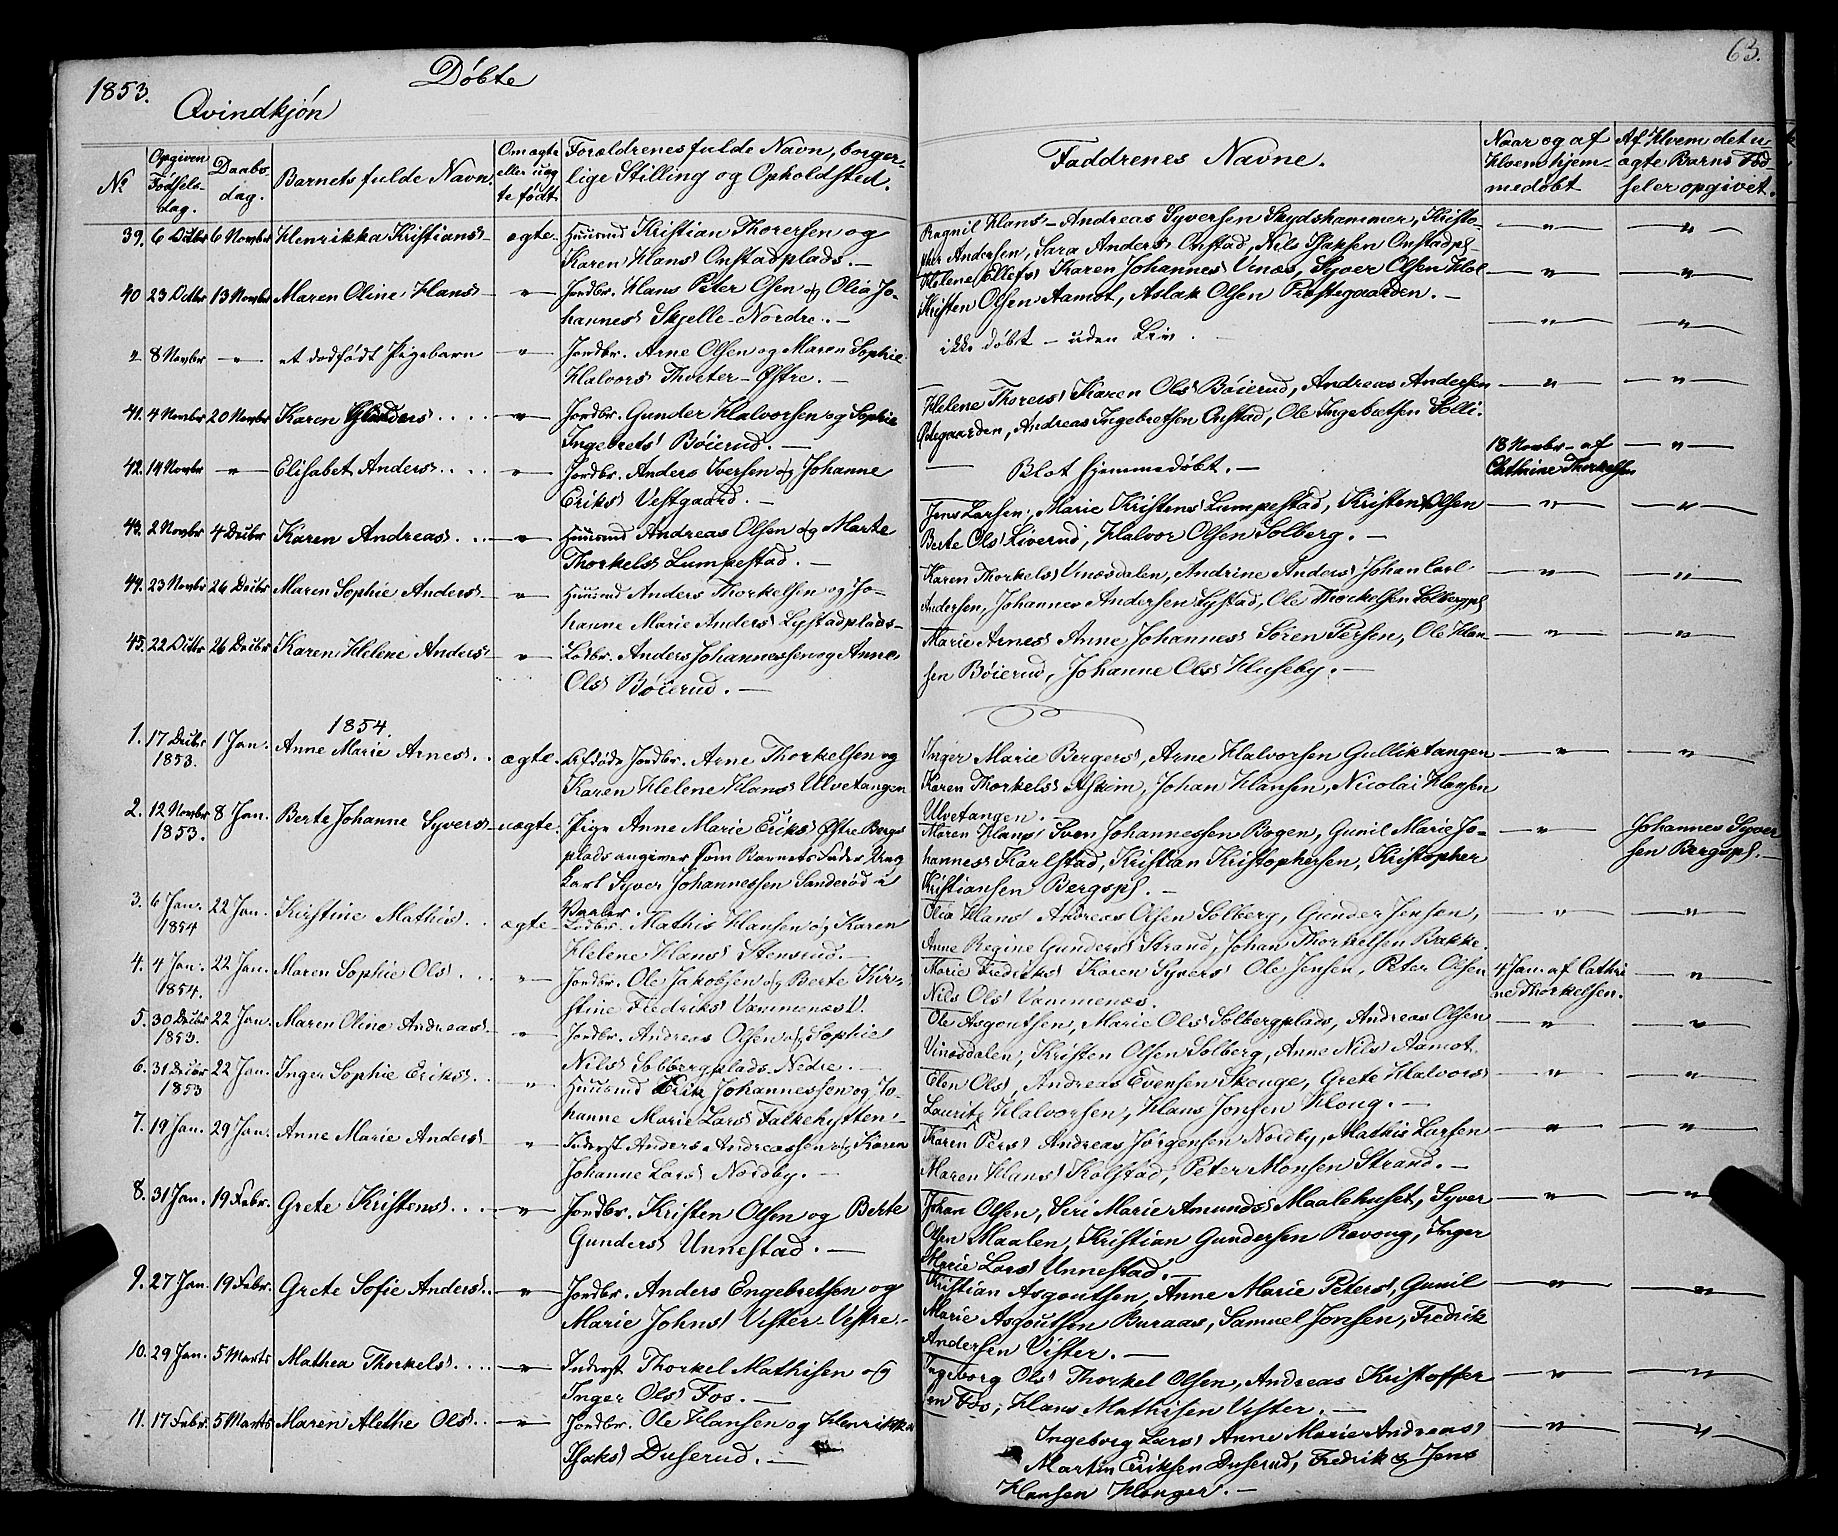 1853. Døbte 63.
Qvindkjøn
No Opgiven Fødselsdag. Daabsdag. Barnets fulde Navn. Om ægte eller uægte født Forældrenes fulde Navn, borgerlige Stilling og Opholdsted. Faddrenes Navne. Naar og af Hvem hjemmedøbt Af Hvem det uægte Barns Fødseler opgivet.
39. 6 Octbr 6 Novbr Henrikka Kristians ægte Huusmd Kristian Thorersen og
Karen Hans Onstadplads. —
Ragnil Hans — Andreas Syversen Skydshammer, Kristo-
pher Andersen, Sara Anders Onstad, Nils Isaksen Onstadpl
40 23 Octbr 13 Novbr Maren Oline Hans — " — Jordbr. Hans Peter Olsen og Olia Jo-
hannes Skjelle-Nordre. —
Helene Ellefs Karen Johannes Vnæs, Syver Olsen Hol
Kristen Olsen Aamot, Aslak Olsen Præstegaarden. —
" 8 Novbr — " — et dødfødt Pigebarn " Jordbr. Arne Olsen og Maren Sophie
Halvors Thorter-Østre. —
ikke døbt — uden Liv.
41. 4 Novbr 20 Novbr Karen Gunders . . . . — " — Jordbr. Gunder Halvorsen og Sophie
Ingebrets Bøierud. —
Helene Thorers Karen Ols Bøierud, Andreas Andersen
Ødegaarden, Andreas Ingebretsen Onstad, Ole Ingebretsen Solli.
42. 14 Novbr — " — Elisabet Anders . . . — " — Jordbr. Anders Iversen og Johanne
Eriks Vestgaard. —
— Blot hjemmedøbt. — 18 Novbr — af
Cathrine Thorkelsen
43. 2 Novbr 4 Decbr Karen Andreas . . . — " — Huusmd Andreas Olsen og Marte
Thorkels Lumpestad. —
Jens Larsen, Marie Kristens Lumpestad, Kristen Olsen
Berte Ols Liverud, Halvor Olsen Solberg. —
44. 23 Novbr 26 Decbr Maren Sophie Anders — " — Huusmd Anders Thorkelsen og Jo-
hanne Marie Anders Lystadplads —
Karen Thorkels Vnæsdalen, Andrine Anders Johan Carl
Andersen, Johannes Andersen Lystad, Ole Thorkelsen Solbergpl
45. 22 Octbr 26 Decbr Karen Helene Anders — " — Lodbr. Anders Johannessen og Anne
Ols Bøierud. —
Marie Arnes Anne Johannes Søren Persen, Ole Han-
sen Bøierud, Johanne Ols Huseby. —
1854.
1. 17 Decbr 1853. 1 Jan. Anne Marie Arnes . . ægte. Afdøde Jordbr. Arne Thorkelsen og
Karen Helene Hans Ulvetangen
Inger Marie Bergers, Arne Halvorsen Gulliktangen
Karen Thorkels Askim, Johan Hansen, Nicolai Hansen
Ulvetangen.
2. 12 Novbr 1853. 8 Jan. Berte Johanne Syvers uægte. Pige Anne Marie Eriks Østre Bergs
plads angiver som Barnets Fader Ung
karl Syver Johannessen Sanderød i
Vaaler.
Maren Hans Sven Johannessen Bogen, Gunil Marie Jo-
hannes Karlstad, Kristian Kristophersen, Kristopher
Kristiansen Bergspl. —
Johannes Syver
sen Bergspl. —
3. 6 Jan. 1854 22 Jan. Kirstine Mathis . . ægte Lodbr. Mathis Hansen og Karen
Helene Hans Stensrud. —
Olia Hans Andreas Olsen Solberg, Gunder Jensen,
Anne Regine Gunders Strand, Johan Thorkelsen Bakke.
4. 4 Jan. 1854. 22 Jan. Maren Sophie Ols . . — " — Jordbr. Ole Jakobsen og Berte Kir-
stine Fredriks Vammenæs V.
Marie Fredriks Karen Syvers Ole Jensen, Peter Olsen
Nils Ols Vammenæs. 4 Jan. af Cathri
ne Thorkelsen.
5. 30 Decbr 1853. 22 Jan. Maren Oline Andreas — " Jordbr. Andreas Olsen og Sophie
Nils Solbergplads-Nedre. —
Ole Asgoutsen, Marie Ols Solbergplads, Andreas Olsen
Vinæsdalen, Kristen Olsen Solberg, Anne Nils Aamot.
6. 31 Decbr 1853 22 Jan. Inger Sophie Eriks . . " Huusmd Erik Johannessen og Jo-
hanne Marie Lars Falkehytten —
Elen Ols, Andreas Evensen Skouge, Grete Halvors
Lauritz Halvorsen, Hans Jonsen Houg. —
7. 19 Jan. 29 Jan. Anne Marie Anders — " Inderst Anders Andreassen og Karen
Johanne Lars Nordby. —
Karen Pers Andreas Jørgensen Nordby, Mathis Larsen
Maren Hans Kolstad, Peter Monsen Strand. —
8. 31 Jan. 19 Febr. Grete Kristens . . . — " — Jordbr. Kristen Olsen og Berte
Gunders Unnestad. —
Johan Olsen, Siri Marie Amunds Maalehuset, Syver
Olsen Maalen, Kristian Gundersen Revoug, Inger
Marie Lars Unnestad. —
9. 27 Jan. 19 Febr. Grete Sofie Anders . . — " — Jordbr. Anders Engebretsen og
Marie Johns Vister-Vestre. —
Kristian Asgoutsen, Anne Marie Peters, Gunil
Marie Asgoutsen Buraas, Samuel Jonsen, Fredrik
Andersen Vister. —
10. 29 Jan. 5 Marts Mathea Thorkels . . . . — " — Inderst Thorkel Mathisen og
Inger Ols Fos. —
Ingeborg Ols Thorkel Olsen, Andreas Kristoffer
sen Fos, Hans Mathisen Vister. —
11. 17 Febr. 5 Marts Maren Alethe Ols . . — " — Jordbr. Ole Hansen og Henrikka
Isaks Duserud. —
Ingeborg Lars Anne Marie Andreas
Martin Eriksen Duserud, Fredrik og Jens
Hansen Honger. —